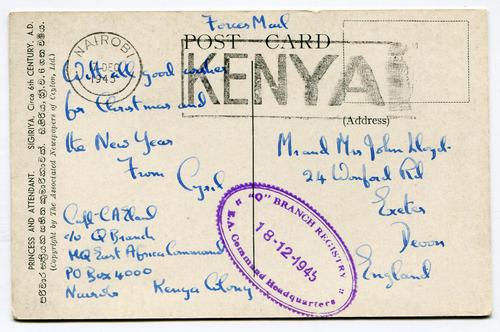 Forces Mail
POST CARD
NAIROBI
DEC
1945
KENYA
With all good wishes
for Christmas and
the New Year
From Cyril
(Address)
Mr and Mrs John Lloyd
24 Wonford Rd
Exeter
Devon
England
c/o Q Branch
HQ East Africa Command
PO Box 4000
Nairobi Kenya Colony
"Q" BRANCH REGISTRY
18-12-1945
E.A. Command Headquarters
PRINCESS AND ATTENDANT. SIGIRIYA. Circa 6th CENTURY. A.D.
(Copyright by The Associated Newspapers of Ceylon, Ltd.)